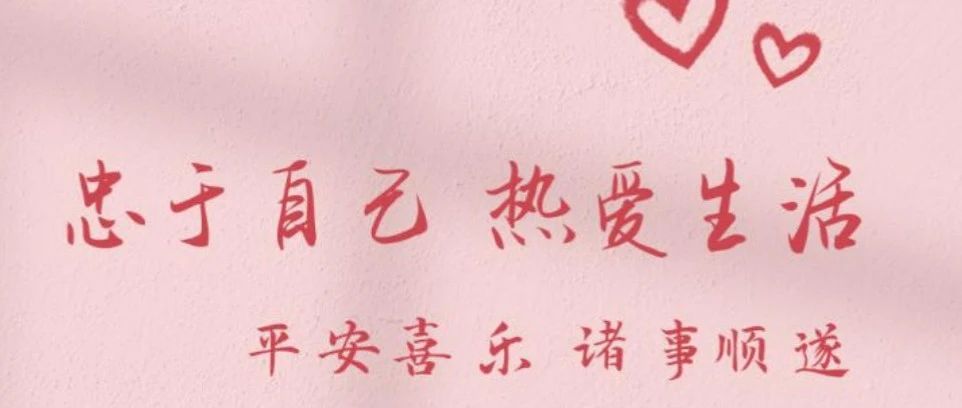 忠于自己 热爱生活
平安喜乐 诸事顺遂